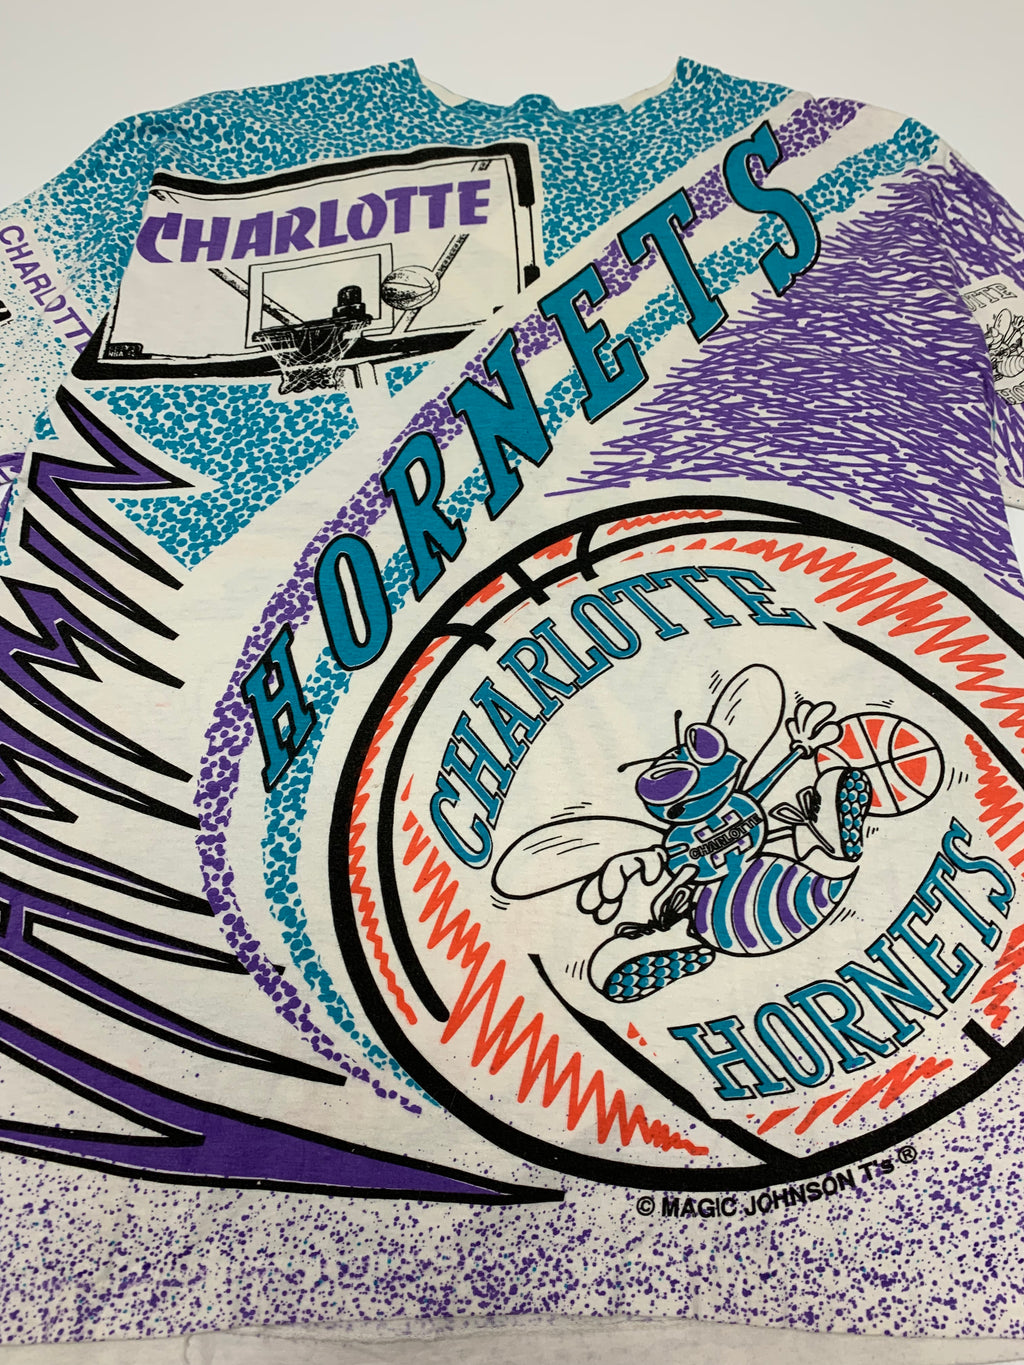 CHARLOTTE
CHARLOTTE
HORNETS
CHARLOTTE
CHARLOTTE
HORNETS
© MAGIC JOHNSON T's ®